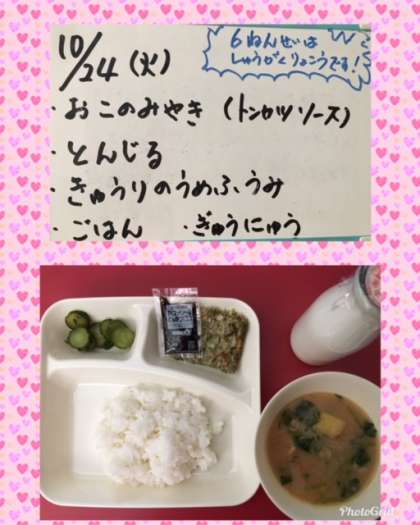 10/24(火)
6ねんせいは
しゅうがくりょこうです!
・おこのみやき (トンカツソース)
・とんじる
・きゅうりのうめふうみ
・ごはん ・ぎゅうにゅう
PhotoGrid